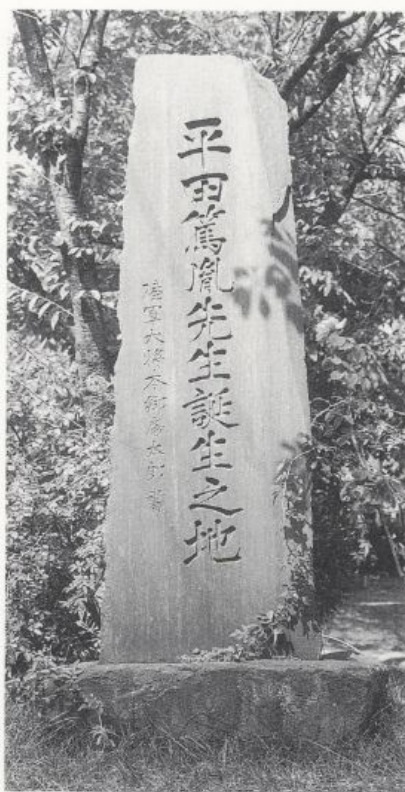 平田篤胤先生誕生之地
陸軍大將本鄉房太郎書